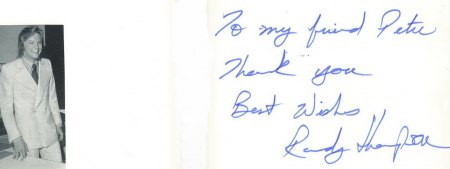 To my friend Pete
Thank you
Best Wishes
Randy